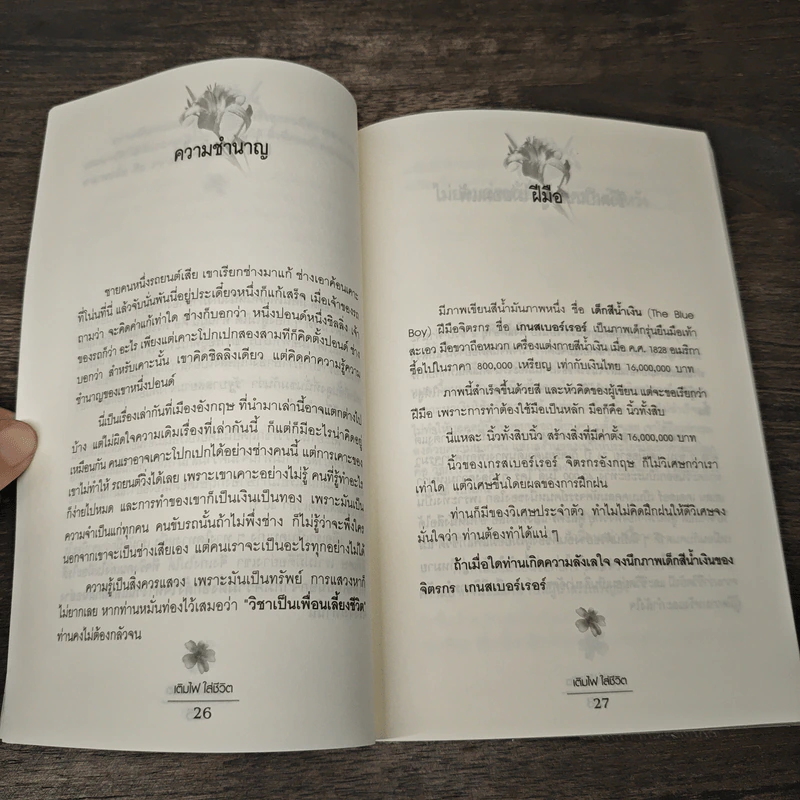 ความชำนาญ
ชายคนหนึ่งรถยนต์เสีย เขาเรียกช่างมาแก้ ช่างเอาค้อนเคาะ
ที่โน่นที่นี่ แล้วจับนั่นพันนี่อยู่ประเดี๋ยวหนึ่งก็แก้เสร็จ เมื่อเจ้าของรถ
ถามว่า จะคิดค่าแก้เท่าใด ช่างก็บอกว่า หนึ่งปอนด์หนึ่งชิลลิ่ง เจ้า
ของรถก็ว่า อะไร เพียงแต่เคาะโปกเปกสองสามทีก็คิดตั้งปอนด์ ช่าง
บอกว่า สำหรับเคาะนั้น เขาคิดชิลลิ่งเดียว แต่คิดค่าความรู้ความ
ชำนาญของเขาหนึ่งปอนด์
นี่เป็นเรื่องเล่ากันที่เมืองอังกฤษ ที่นำมาเล่านี้อาจแตกต่างไป
บ้าง แต่ไม่ผิดใจความเดิมเรื่องที่เล่ากันนี้ ก็แต่ก็มีอะไรน่าคิดอยู่
เหมือนกัน คนเราอาจเคาะโปกเปกได้อย่างช่างคนนี้ แต่การเคาะของ
เขาไม่ทำให้ รถยนต์วิ่งได้เลย เพราะเขาเคาะอย่างไม่รู้ คนที่รู้ทำอะไร
ก็ง่ายไปหมด และการทำของเขาก็เป็นเงินเป็นทอง เพราะมันเป็น
ความจำเป็นแก่ทุกคน คนขับรถนั้นถ้าไม่พึ่งช่าง ก็ไม่รู้ว่าจะพึ่งใคร
นอกจากเราจะเป็นช่างเสียเอง แต่คนเราจะเป็นอะไรทุกอย่างไม่ได้
ความรู้เป็นสิ่งควรแสวง เพราะมันเป็นทรัพย์ การแสวงหาก็
ไม่ยากเลย หากท่านหมั่นท่องไว้เสมอว่า "วิชาเป็นเพื่อนเลี้ยงชีวิต"
ท่านคงไม่ต้องกลัวจน
เติมไฟ ใส่ชีวิต
26
ฝีมือ
มีภาพเขียนสีน้ำมันภาพหนึ่ง ชื่อ เด็กสีน้ำเงิน (The Blue
Boy) ฝีมือจิตรกร ชื่อ เกนสเบอร์เรอร์ เป็นภาพเด็กรุ่นยืนมือเท้า
สะเอว มือขวาถือหมวก เครื่องแต่งกายสีน้ำเงิน เมื่อ ค.ศ. 1828 อเมริกา
ซื้อไปในราคา 800,000 เหรียญ เท่ากับเงินไทย 16,000,000 บาท
ภาพนี้สำเร็จขึ้นด้วยสี และหัวคิดของผู้เขียน แต่จะขอเรียกว่า
ฝีมือ เพราะการทำต้องใช้มือเป็นหลัก มือก็คือ นิ้วทั้งสิบ
นี่แหละ นิ้วทั้งสิบนิ้ว สร้างสิ่งที่มีค่าตั้ง 16,000,000 บาท
นิ้วของเกรสเบอร์เรอร์ จิตรกรอังกฤษ ก็ไม่วิเศษกว่าเรา
เท่าใด แต่วิเศษขึ้นโดยผลของการฝึกฝน
ท่านก็มีของวิเศษประจำตัว ทำไมไม่คิดฝึกฝนให้ดีวิเศษจง
มั่นใจว่า ท่านต้องทำได้แน่ ๆ
ถ้าเมื่อใดท่านเกิดความลังเลใจ จงนึกภาพเด็กสีน้ำเงินของ
จิตรกร เกนสเบอร์เรอร์
เติมไฟ ใส่ชีวิต
27